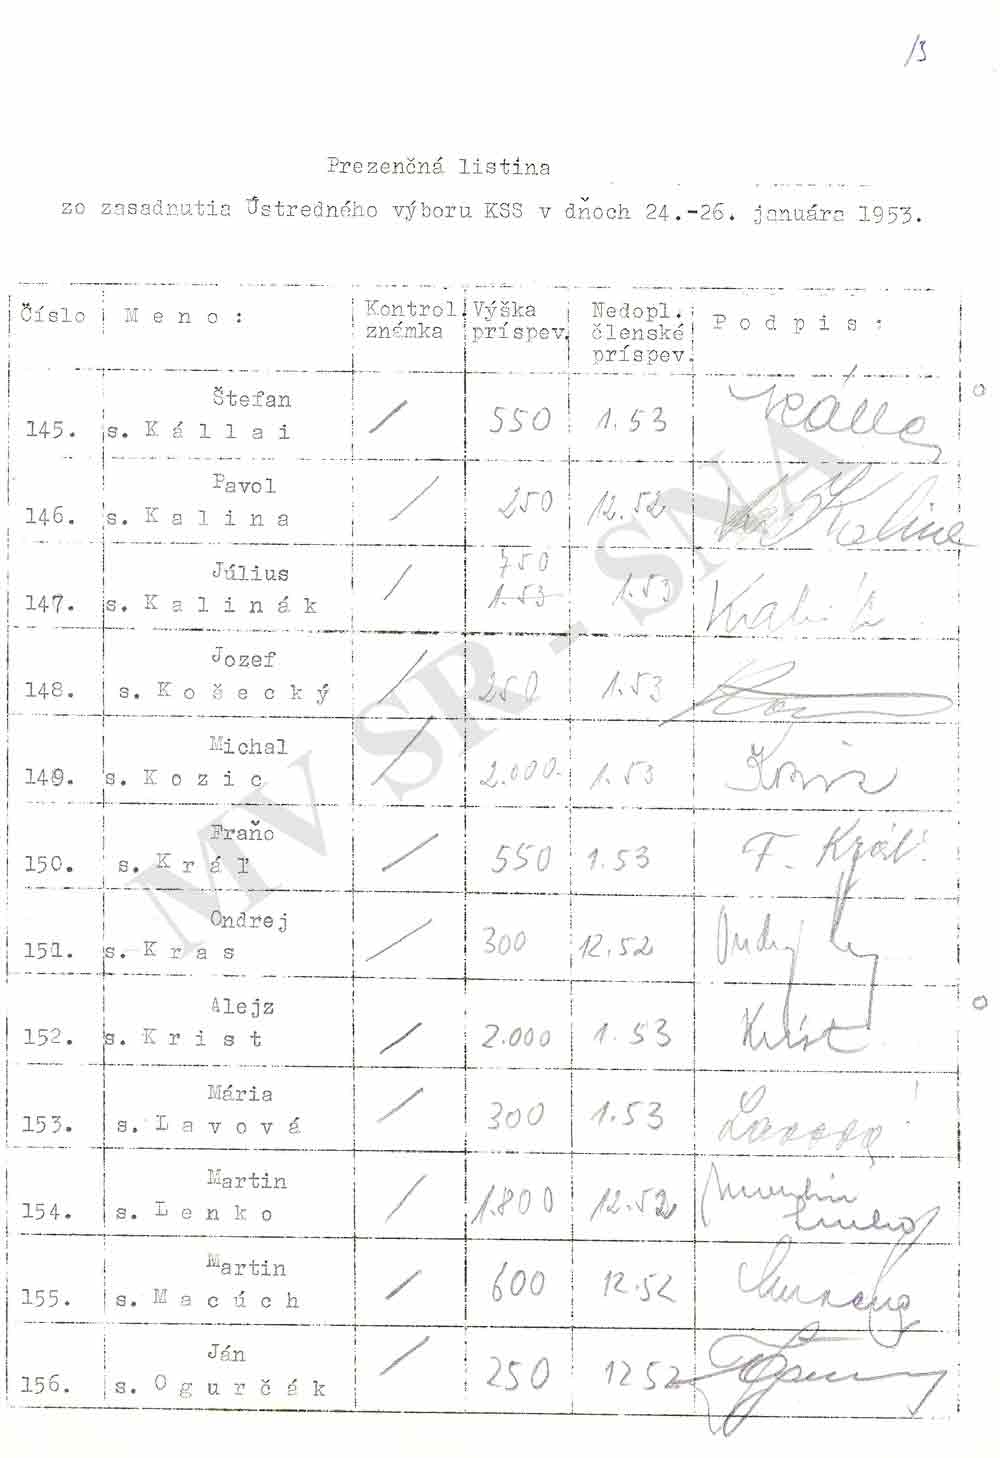 13
Prezenčná listina
zo zasadnutia Ústredného výboru KSS v dňoch 24.-26. januára 1953.
Číslo M e n o : Kontrol. známka Výška príspev. Nedopl. členské príspev. P o d p i s :
Štefan
145. s. K á l l a i / 550 1.53
Pavol
146. s. K a l i n a / 250 12.52 Kalina
Július 750
147. s. K a l i n á k / 1.53 1.53
Jozef
148. s. K o š e c k ý / 250 1.53
Michal
149. s. K o z i c / 2.000.- 1.53
Fraňo
150. s. K r á ľ / 550 1.53 F. Kráľ
Ondrej
151. s. K r a s / 300 12.52 Ondrej
Alejz
152. s. K r i s t / 2.000 1.53 Krist
Mária
153. s. L a v o v á / 300 1.53 Lavová
Martin
154. s. L e n k o / 1.800 12.52 Martin Lenko
Martin
155. s. M a c ú c h / 600 12.52
Ján
156. s. O g u r č á k / 250 12 52
MV SR - SNA